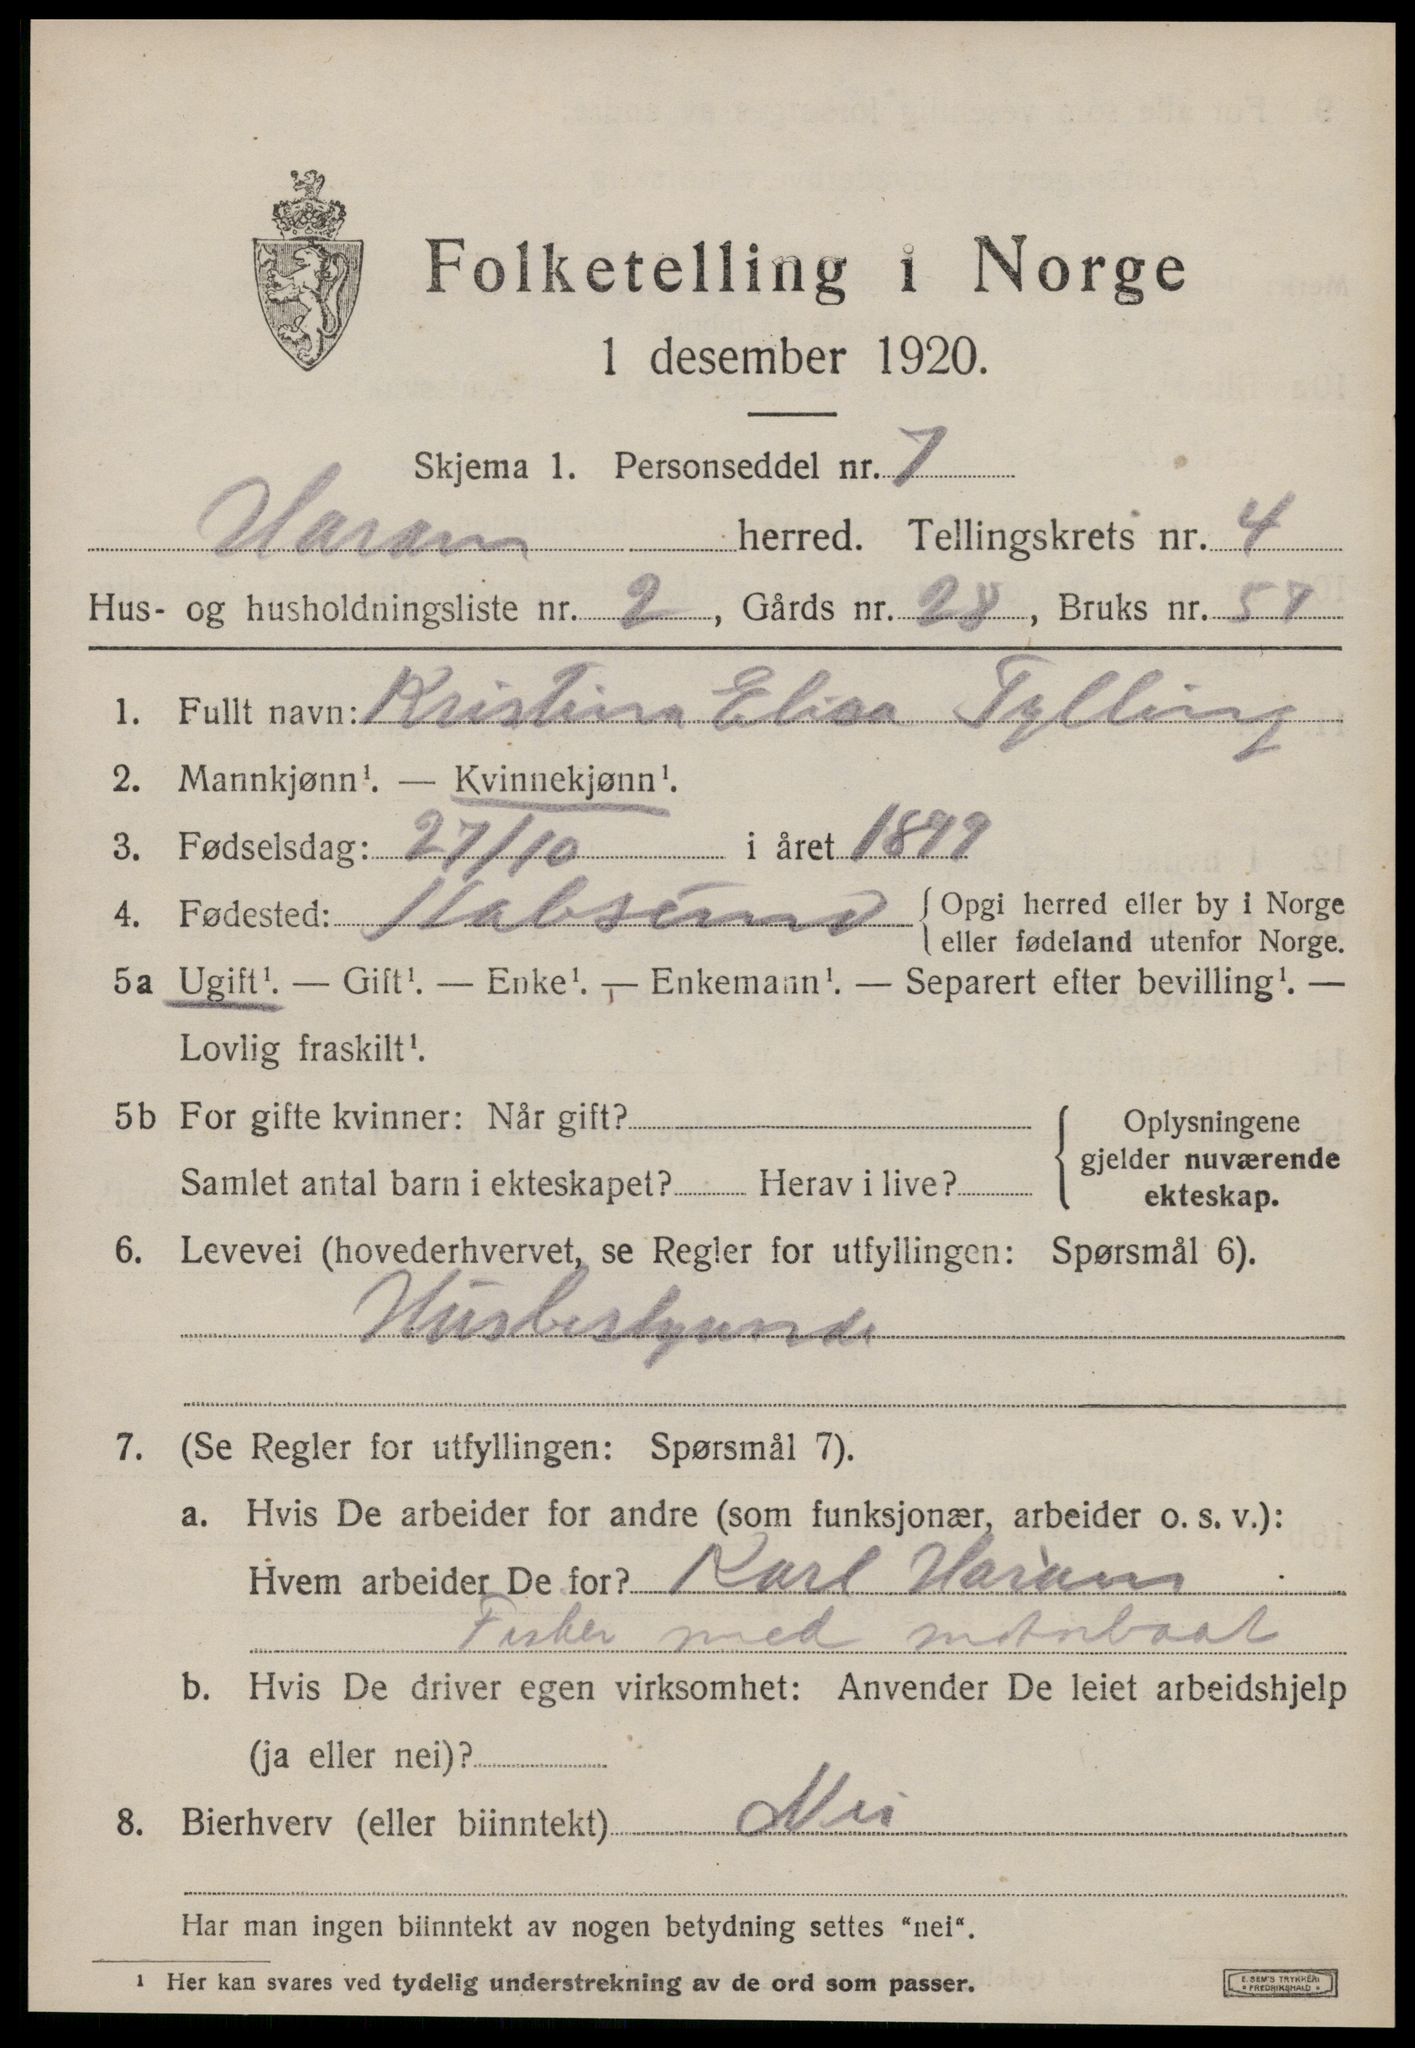 Folketelling i Norge
1 desember 1920.
Skjema 1. Personseddel nr. 7
Haram herred. Tellingskrets nr. 4
Hus- og husholdningsliste nr. 2, Gårds nr. 28, Bruks nr. 57
1. Fullt navn: Kristina Elisa Tylling
2. Mannkjønn¹. — Kvinnekjønn¹.
3. Fødselsdag: 27/10 i året 1899
4. Fødested: {Opgi herred eller by i Norge
eller fødeland utenfor Norge.
5a Ugift¹. — Gift¹. — Enke¹. — Enkemann¹. — Separert efter bevilling¹. —
Lovlig fraskilt¹.
5b For gifte kvinner: Når gift?
Samlet antal barn i ekteskapet? Herav i live?
{Oplysningene
gjelder nuværende
ekteskap.
6. Levevei (hovederhvervet, se Regler for utfyllingen: Spørsmål 6).
Husbestyrinde
7. (Se Regler for utfyllingen: Spørsmål 7).
a. Hvis De arbeider for andre (som funksjonær, arbeider o. s. v.):
Hvem arbeider De for? Karl Haram
Fisker med motorbaat
b. Hvis De driver egen virksomhet: Anvender De leiet arbeidshjelp
(ja eller nei)?
8. Bierhverv (eller biinntekt) Nei
Har man ingen biinntekt av nogen betydning settes "nei".
¹ Her kan svares ved tydelig understrekning av de ord som passer.
E. SEM'S TRYKKERI
* FREDRIKSHALD *